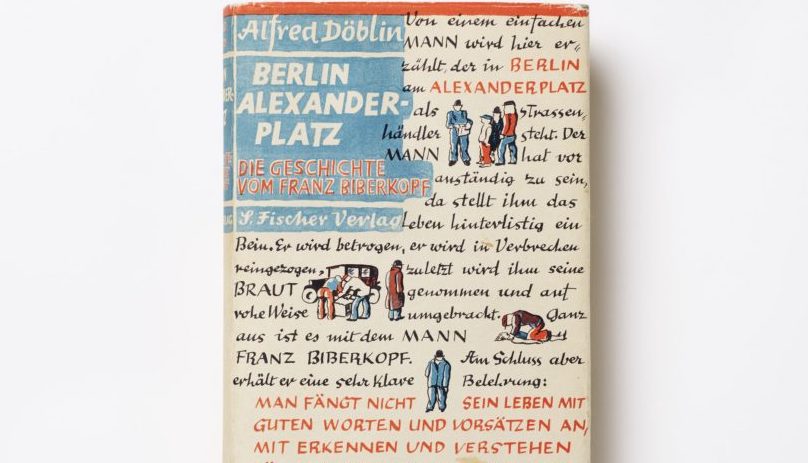 Alfred Döblin
BERLIN
ALEXANDER-
PLATZ
DIE GESCHICHTE
VOM FRANZ BIBERKOPF
S. Fischer Verlag
Von einem einfachen
MANN wird hier er-
zählt, der in BERLIN
am ALEXANDERPLATZ
als strassen-
händler steht. Der
MANN hat vor
anständig zu sein,
da stellt ihm das
Leben hinterlistig ein
Bein. Er wird betrogen, er wird in Verbrechen
reingezogen, zuletzt wird ihm seine
BRAUT genommen und auf
rohe Weise umgebracht. Ganz
aus ist es mit dem MANN
FRANZ BIBERKOPF. Am Schluss aber
erhält er eine sehr klare Belehrung:
MAN FÄNGT NICHT SEIN LEBEN MIT
GUTEN WORTEN UND VORSÄTZEN AN,
MIT ERKENNEN UND VERSTEHEN